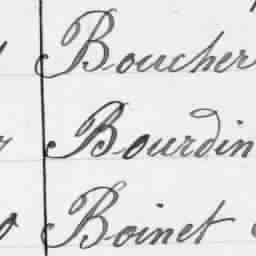 Boucher
Bourdin
Boinet